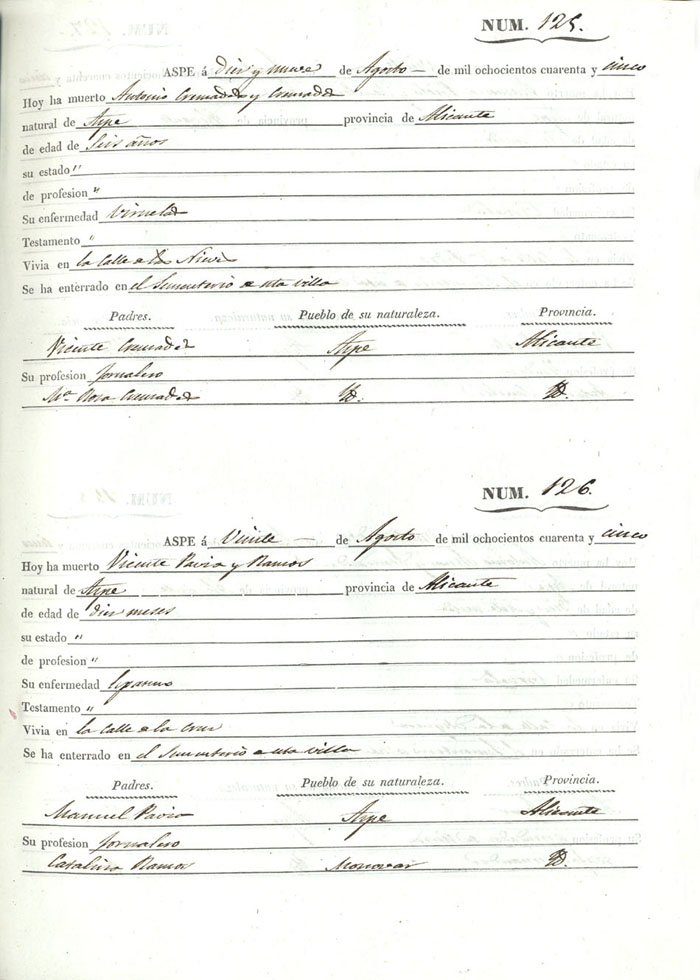 NUM. 125.
ASPE á diez y nueve de Agosto de mil ochocientos cuarenta y cinco
Hoy ha muerto Antonio Cremades y Cremades
natural de Aspe provincia de Alicante
de edad de Seis años
su estado "
de profesion "
Su enfermedad Viruelas
Testamento "
Vivia en la Calle de las Nieves
Se ha enterrado en el Sementerio de esta villa
Padres. Pueblo de su naturaleza. Provincia.
Vicente Cremades Aspe Alicante
Su profesion Jornalero
Mª Rosa Cremades Yd. Yd.
NUM. 126.
ASPE á Veinte de Agosto de mil ochocientos cuarenta y cinco
Hoy ha muerto Vicente Pavia y Ramos
natural de Aspe provincia de Alicante
de edad de diez meses
su estado "
de profesion "
Su enfermedad
Testamento "
Vivia en la Calle de la Cruz
Se ha enterrado en el Sementerio de esta villa
Padres. Pueblo de su naturaleza. Provincia.
Manuel Pavia Aspe Alicante
Su profesion Jornalero
Catalina Ramos Monovar Yd.